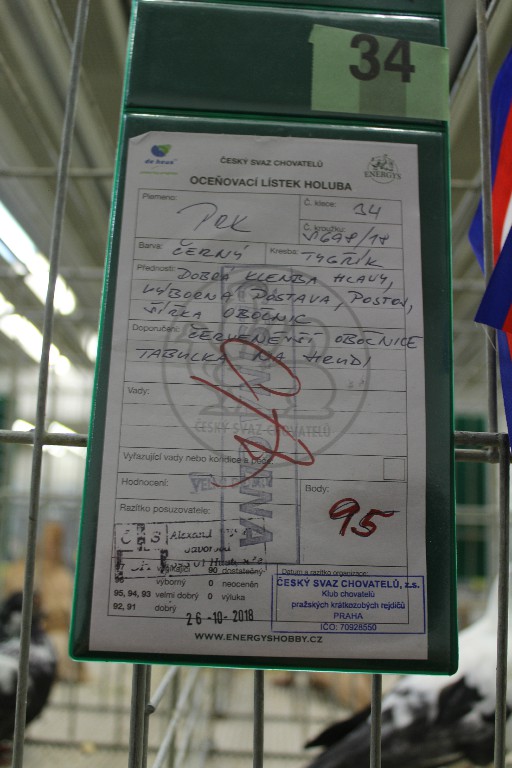 34
de heus
ENERGYS
ČESKÝ SVAZ CHOVATELŮ
OCEŇOVACÍ LÍSTEK HOLUBA
Plemeno: PRK
Č. klece: 34
Č. kroužku: 698/18
Barva: ČERNÝ Kresba: TYGŘÍK
Přednosti: DOBRÁ KLENBA HLAVY,
VÝBORNÁ POSTAVA, POSTOJ,
ŠÍRKA OBOČNIC
Doporučení: ČERVENĚJŠÍ OBOČNICE
TABULKA NA HRUDI
Vady:
ČESKÝ SVAZ CHOVATELŮ
Vyřazující vady nebo kondice a péče:
Hodnocení:
Body: 95
Razítko posuzovatele:
Alexand
90 dostatečný
96 výborný 0 neoceněn
95, 94, 93 velmi dobrý 0 výluka
92, 91 dobrý
26-10-2018
Datum a razítko organizace:
ČESKÝ SVAZ CHOVATELŮ, z.s.
Klub chovatelů
pražských krátkozobých rejdičů
PRAHA
IČO: 70928550
WWW.ENERGYSHOBBY.CZ